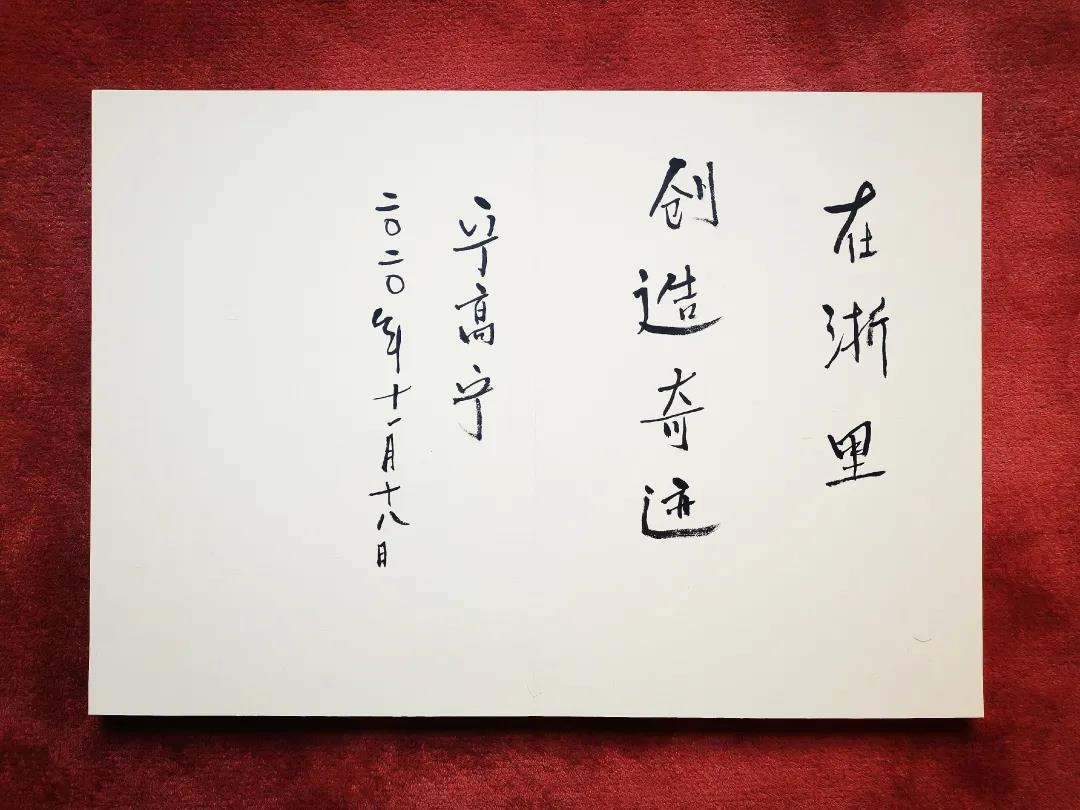 在浙里
创造奇迹
宁高宁
二〇二〇年十一月十八日